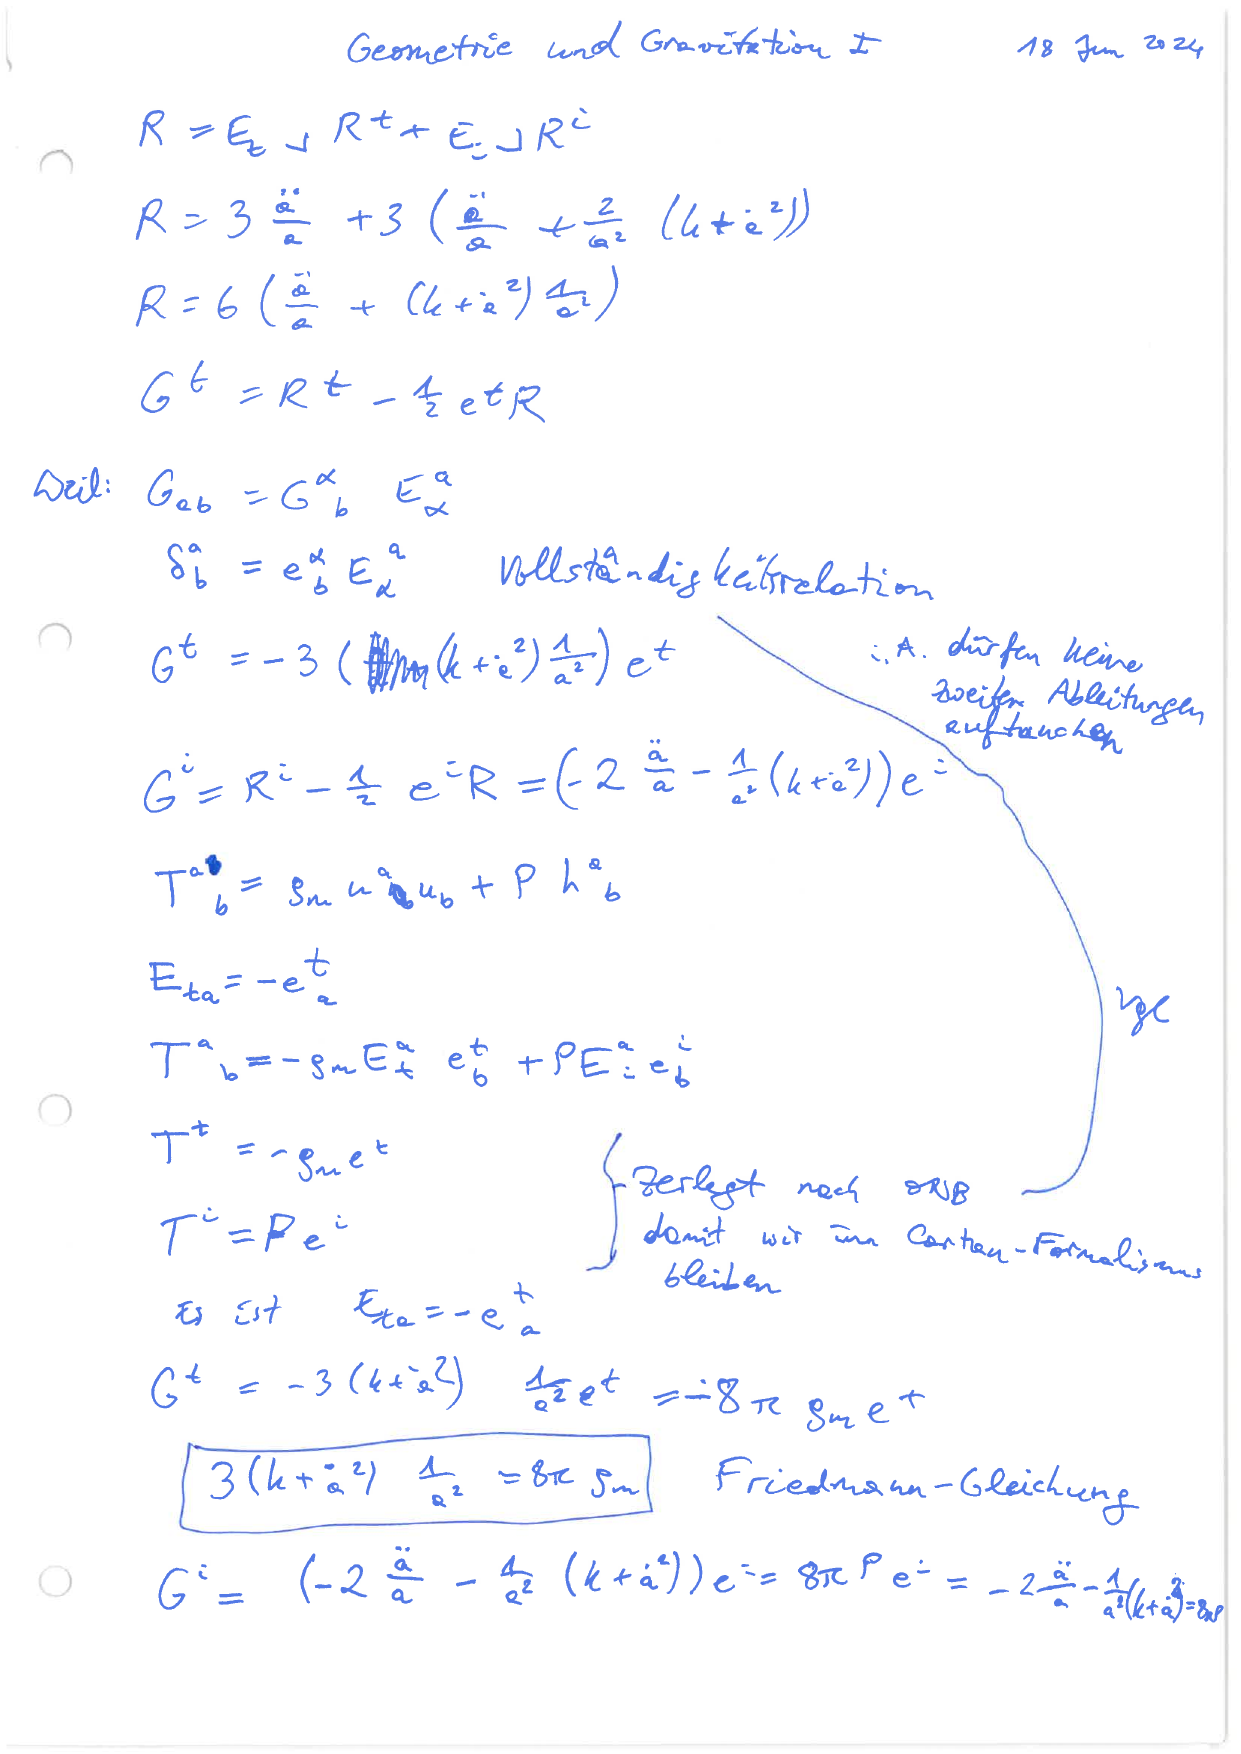 Geometrie und Gravitation I 18 Jun 2024
R = E_t ⌟ R^t + E_i ⌟ R^i
R = 3 ä/a + 3 (ä/a + 2/a² (k + ȧ²))
R = 6 (ä/a + (k + ȧ²) 1/a²)
G^t = R^t - 1/2 e^t R
Weil: G_ab = G^α_b E_α^a
δ^a_b = e^α_b E_α^a Vollständigkeitsrelation
G^t = -3 ((k + ȧ²) 1/a²) e^t
i. A. dürfen keine
zweiten Ableitungen
auftauchen
G^i = R^i - 1/2 e^i R = (-2 ä/a - 1/a² (k + ȧ²)) e^i
T^a_b = ρ_m u^a u_b + P h^a_b
E_ta = -e^t_a
vgl
T^a_b = -ρ_m E_t^a e^t_b + P E_i^a e^i_b
T^t = -ρ_m e^t
T^i = P e^i
Zerlegt nach ONB
damit wir im Cartan-Formalismus
bleiben
Es ist E_ta = -e^t_a
G^t = -3 (k + ȧ²) 1/a² e^t = -8π ρ_m e^t
3 (k + ȧ²) 1/a² = 8π ρ_m Friedmann-Gleichung
G^i = (-2 ä/a - 1/a² (k + ȧ²)) e^i = 8π P e^i = -2 ä/a - 1/a² (k + ȧ²) = 8πP